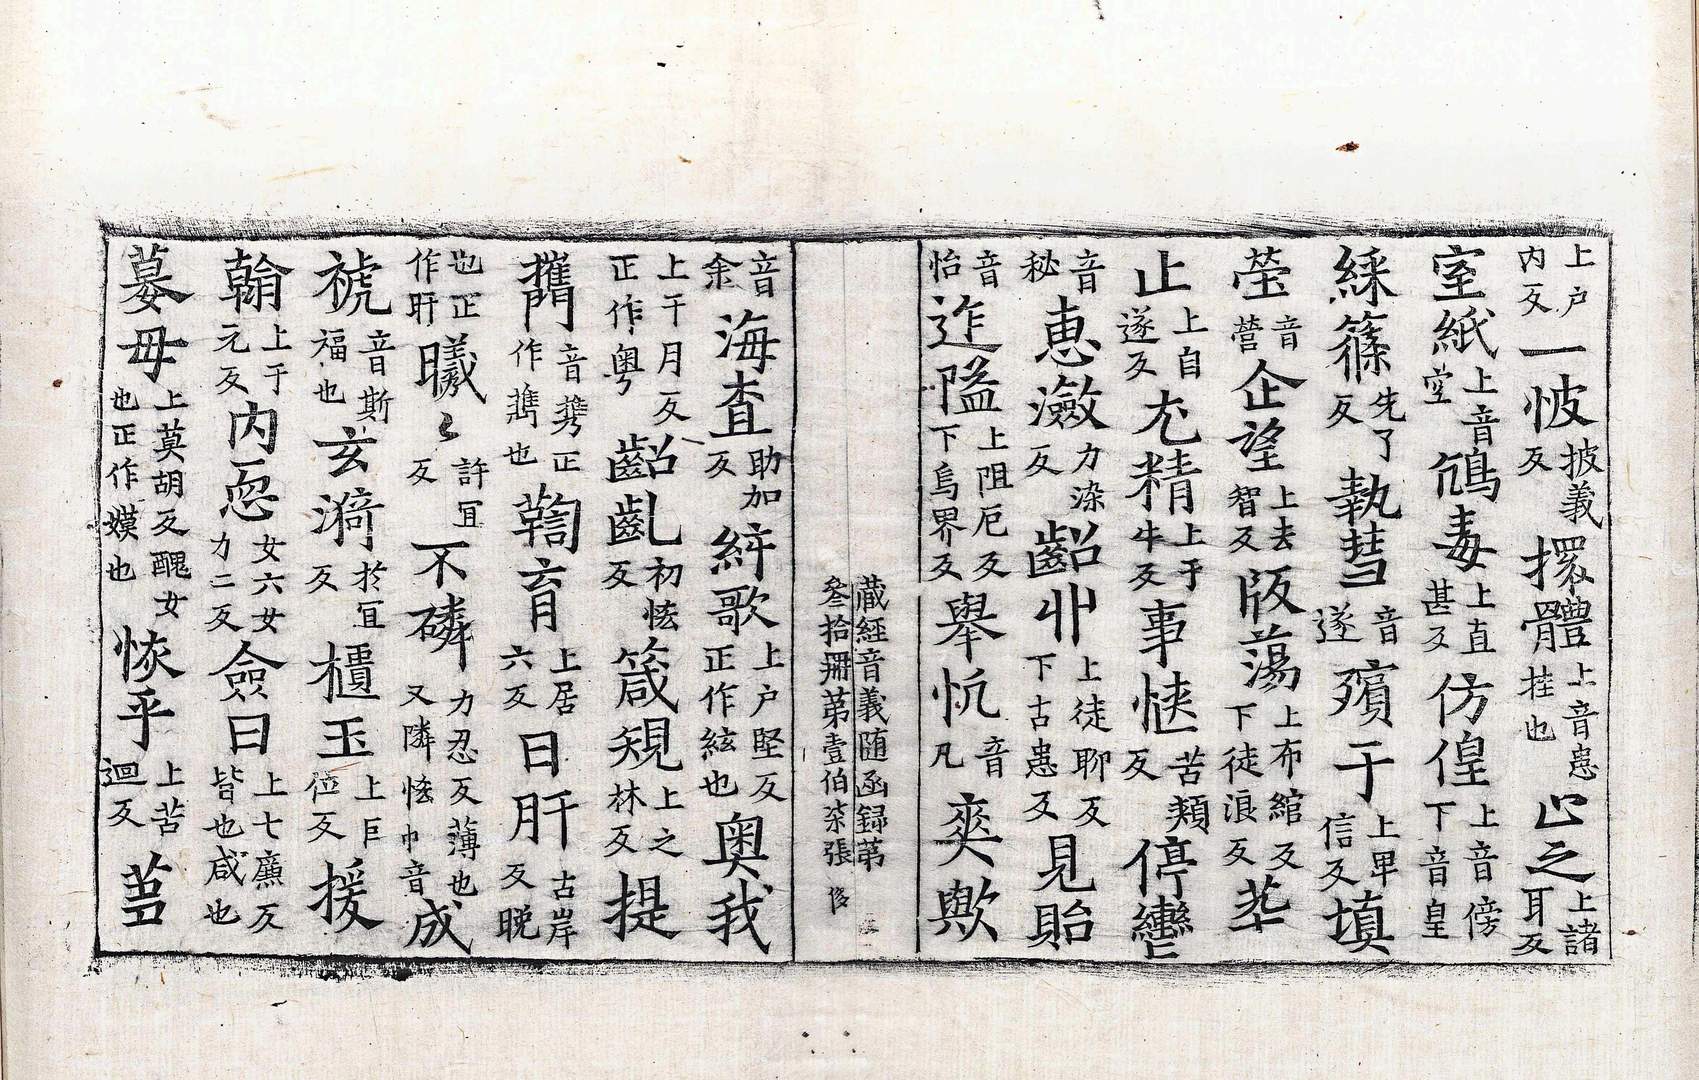 上戶內反一怶披義反擐體上音患挂也止之上諸耳反
室紙上音堂鴆毒上直甚反仿偟上音傍下音皇
綵篠先了反執彗音遂殯于上畢信反填
瑩音營企望上去智反版蕩上布綰反下徒浪反莊
止上自遂反尤精上于牛反事愜苦頰反停轡
音秘惠瀲力染反齠丱上徒聊反下古患反見貽
音怡迮隘上阻厄反下烏界反舉帆音凡奭歟
蔵經音義随函録苐
叄拾冊苐壹伯柒張 俊
音金海査助加反絃歌上戶堅反正作絃也奧我
上于月反正作粤齠齓初恡反箴規上之林反提
㩦音攜正作㩦也鞫育上居六反日肝古岸反晚
也正作旰曦〻許冝反不磷力忍反薄也又隣恡巾音成
褫音斯福也玄漪於冝反櫃玉上巨位反援
翰上于元反內恧女六女力二反僉曰上七廉反皆也咸也
墓母上莫胡反醜女也正作嫫也恢乎上苦迴反莒